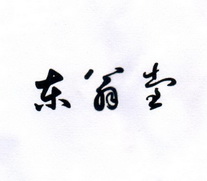 东翁堂